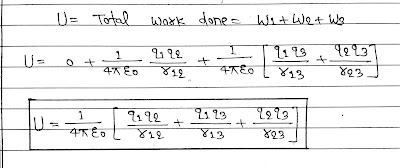 U = Total work done = W1 + W2 + W3
U = 0 + 1/4πε0 q1q2/r12 + 1/4πε0 [ q1q3/r13 + q2q3/r23 ]
U = 1/4πε0 [ q1q2/r12 + q1q3/r13 + q2q3/r23 ]